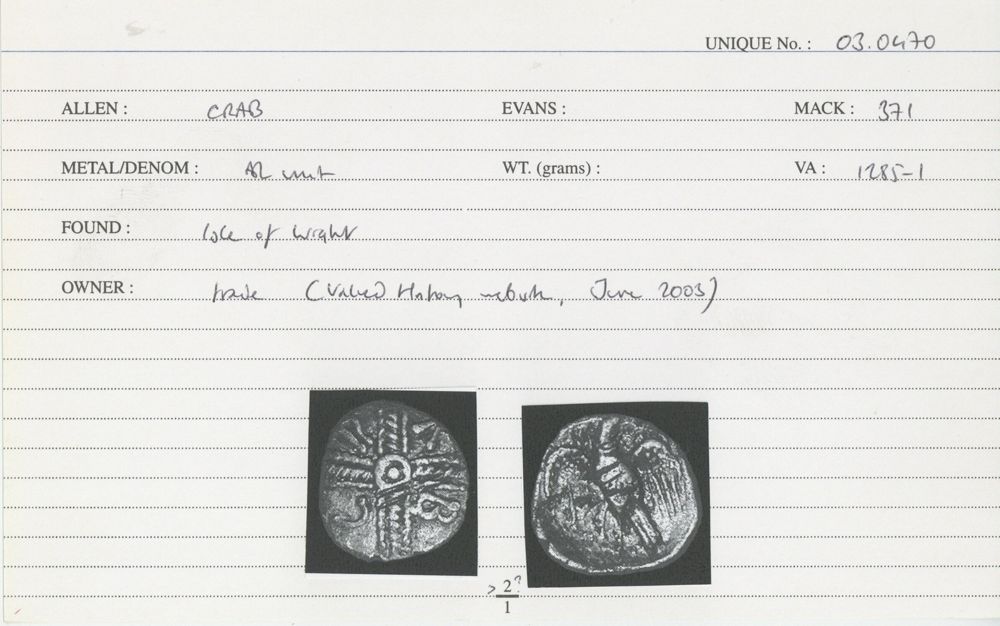 UNIQUE No. : 03.0470
ALLEN : CRAB EVANS : MACK : 371
METAL/DENOM : AR unit WT. (grams) : VA : 1285-1
FOUND : Isle of Wight
OWNER : trade (Valued History website, June 2003)
> 2?
1